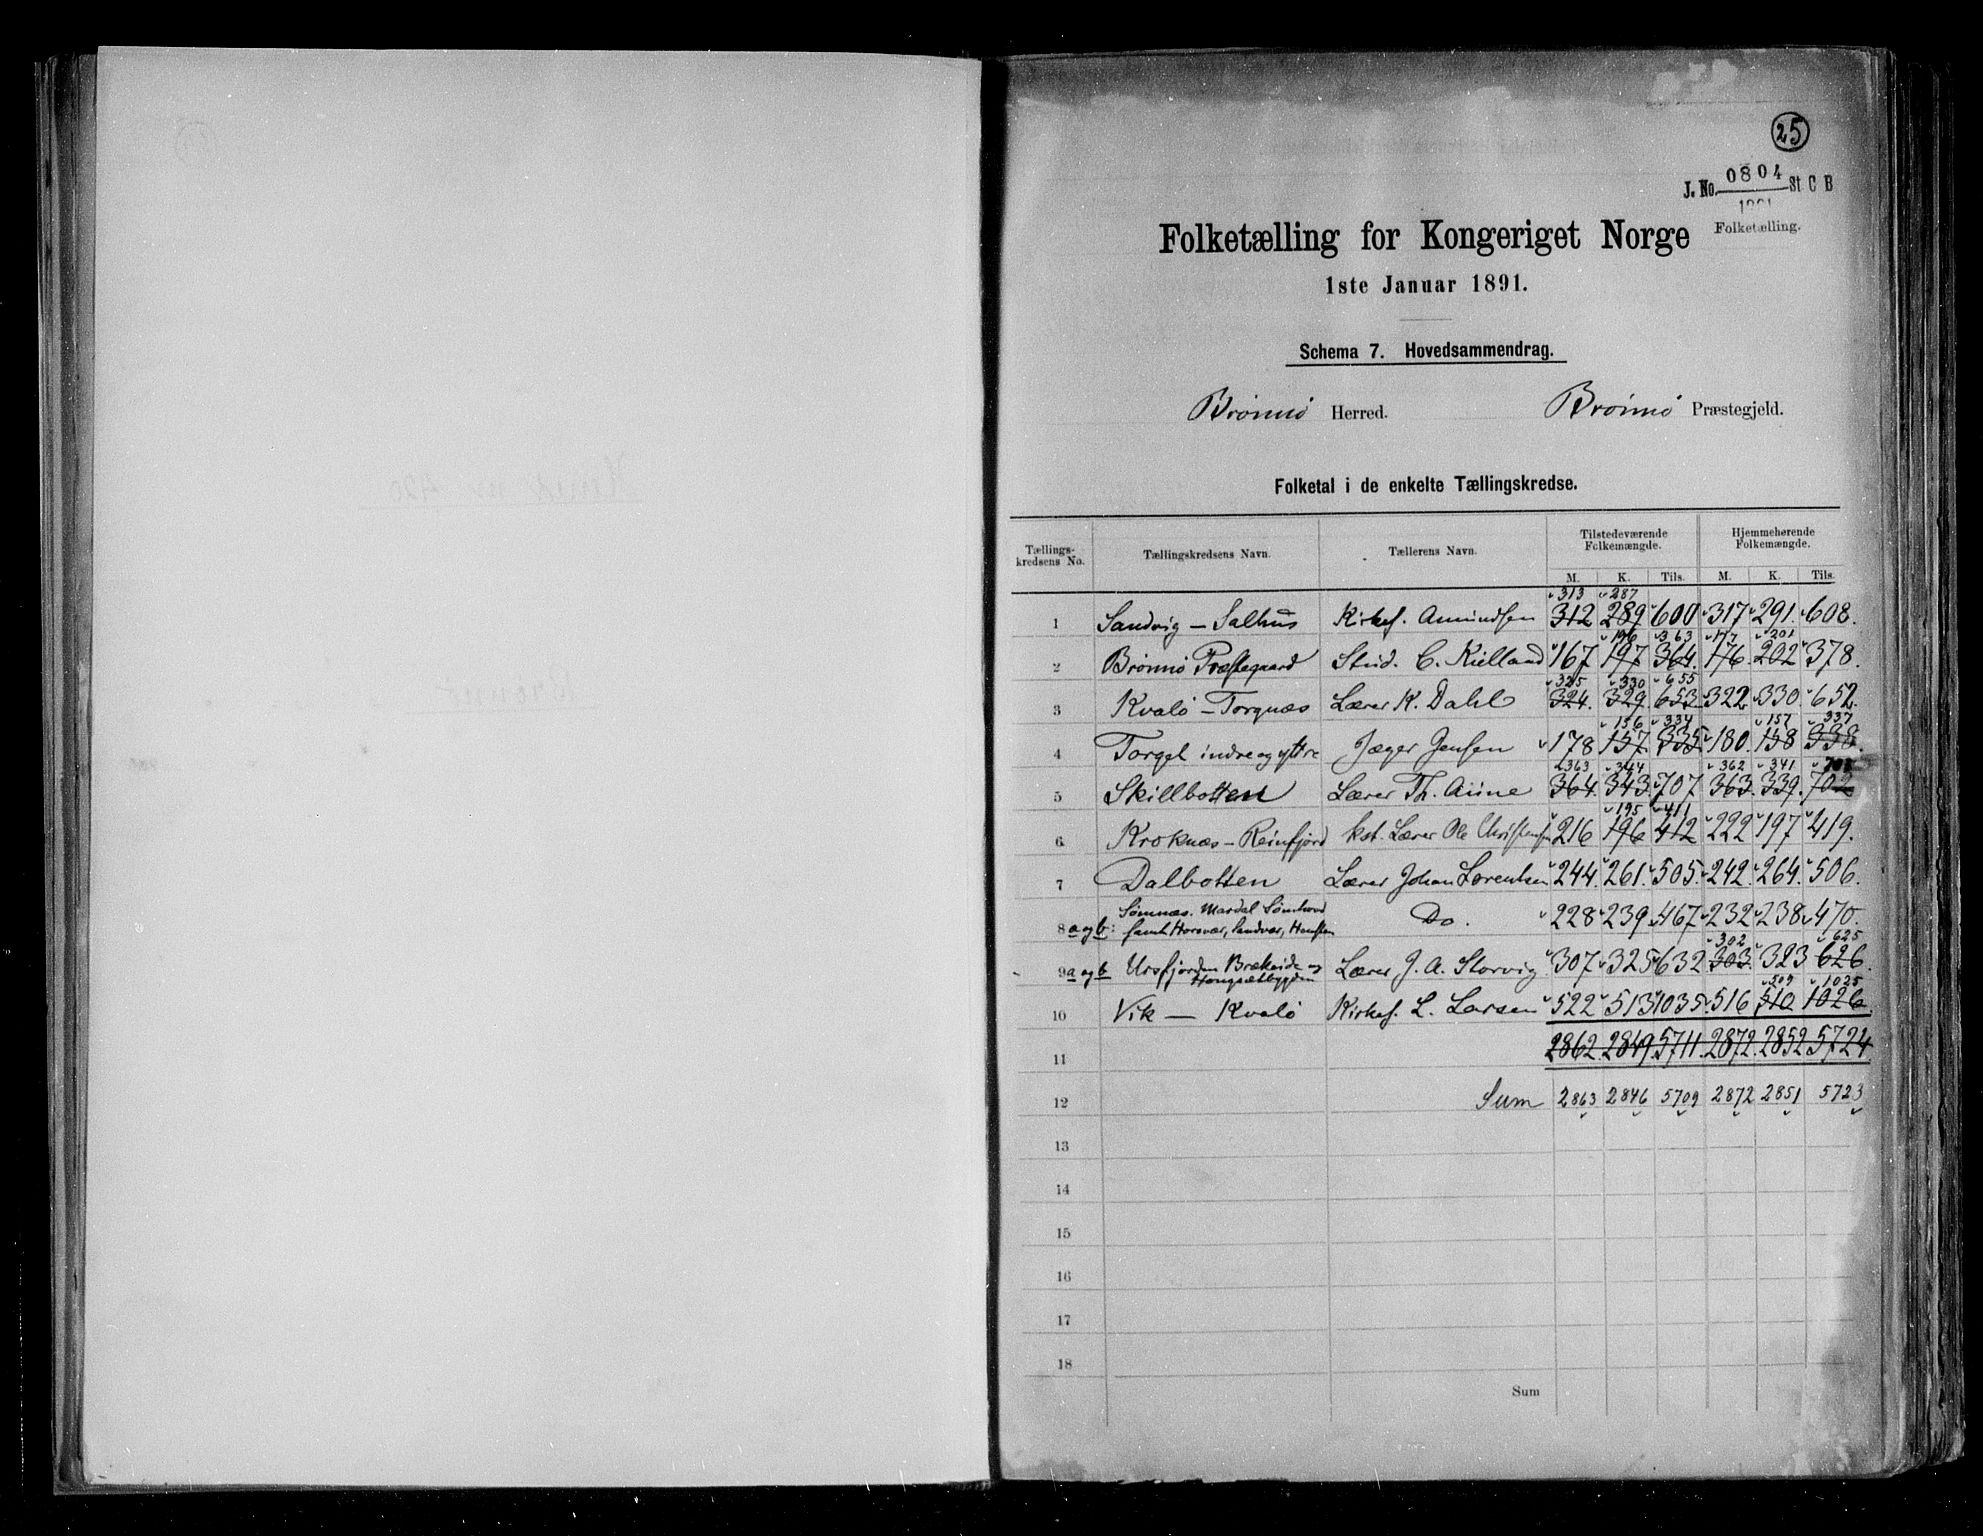 25
J. No. 0804 St C B
1891
Folketælling.
Folketælling for Kongeriget Norge
1ste Januar 1891.
Schema 7. Hovedsammendrag.
Brönnö Herred. Brönnö Præstegjeld.
Folketal i de enkelte Tællingskredse.
Tællings-kredsens No. Tællingskredsens Navn. Tællerens Navn. Tilstedeværende Folkemængde. Hjemmehørende Folkemængde.
M. K. Tils. M. K. Tils.
313 287
1 Sandvig - Salhus Kirkes. Amundsen 312 289 600 317 291 608.
196 363 177 201
2 Brönnö Præstegaard Stud. C. Kielland 167 197 364 176 202 378.
325 330 655
3 Kvalö - Torgnæs Lærer K. Dahl 324 329 653 322 330 652.
156 334 157 337
4 Torget indre og yttre Jæger Jensen 178 157 335 180 158 338.
363 344 362 341 703
5 Skillbotten Lærer Th. Aune 364 343 707 363 339 702
195 411
6 Kroknæs - Reinfjord kst. Lærer Ole Christensen 216 196 412 222 197 419.
7 Dalbotten Lærer Johan Lorentsen 244 261 505 242 264 506.
Sömnæs. Mardal Sömhovd
8 a og b: samt Horsvær, Sandvær, Do. 228 239 467 232 238 470.
302 625
9 a og b Ursfjorden Brækeide og Lærer J. A. Storvig 307 325 632 303 323 626
509 1025
10 Vik - Kvalö Kirkes. L. Larsen 522 513 1035 516 510 1026
11 2862 2849 5711 2872 2852 5724
12 Sum 2863 2846 5709 2872 2851 5723
13
14
15
16
17
18
Sum